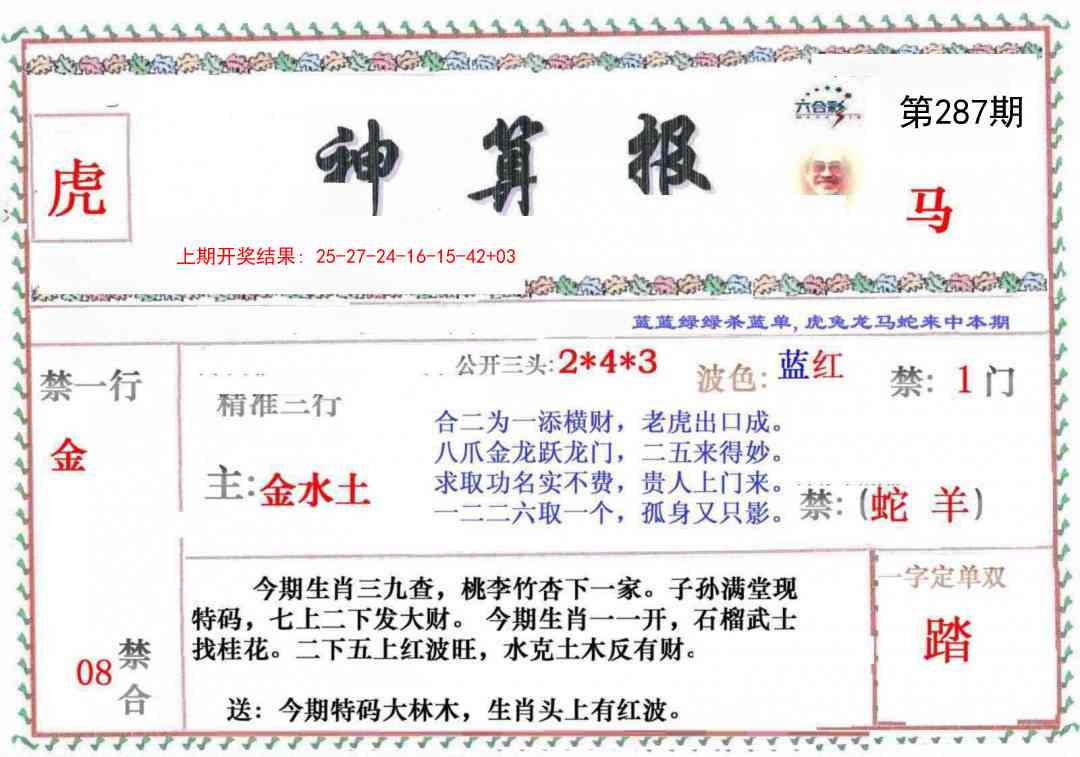 六合彩
第287期
虎
神算报
马
上期开奖结果: 25-27-24-16-15-42+03
蓝蓝绿绿杀蓝单,虎兔龙马蛇来中本期
禁一行
金
公开三头:2*4*3
波色:蓝红
禁: 1门
精准二行
主:金水土
合二为一添横财，老虎出口成。
八爪金龙跃龙门，二五来得妙。
求取功名实不费，贵人上门来。
一二二六取一个，孤身又只影。
禁:(蛇 羊)
今期生肖三九查，桃李竹杏下一家。子孙满堂现
特码，七上二下发大财。 今期生肖一一开，石榴武士
找桂花。二下五上红波旺，水克土木反有财。
送：今期特码大林木，生肖头上有红波。
一字定单双
踏
08
禁合